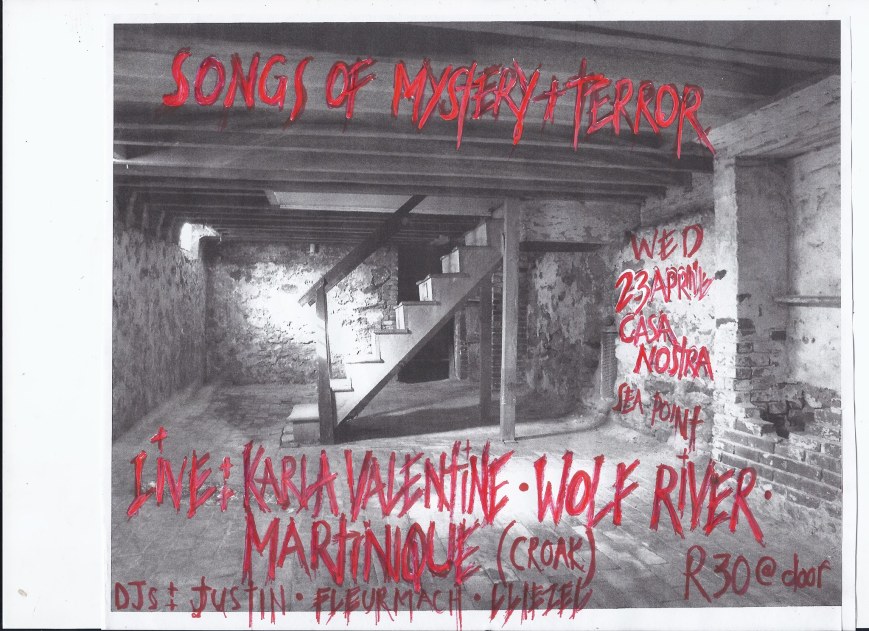 SONGS OF MYSTERY + TERROR
WED
23 APRIL
CASA
NOSTRA
SEA POINT
LIVE: KARLA VALENTINE · WOLF RIVER ·
MARTINIQUE (CROAK)
R30 @ door
DJs: JUSTIN · FLEURMACH ·